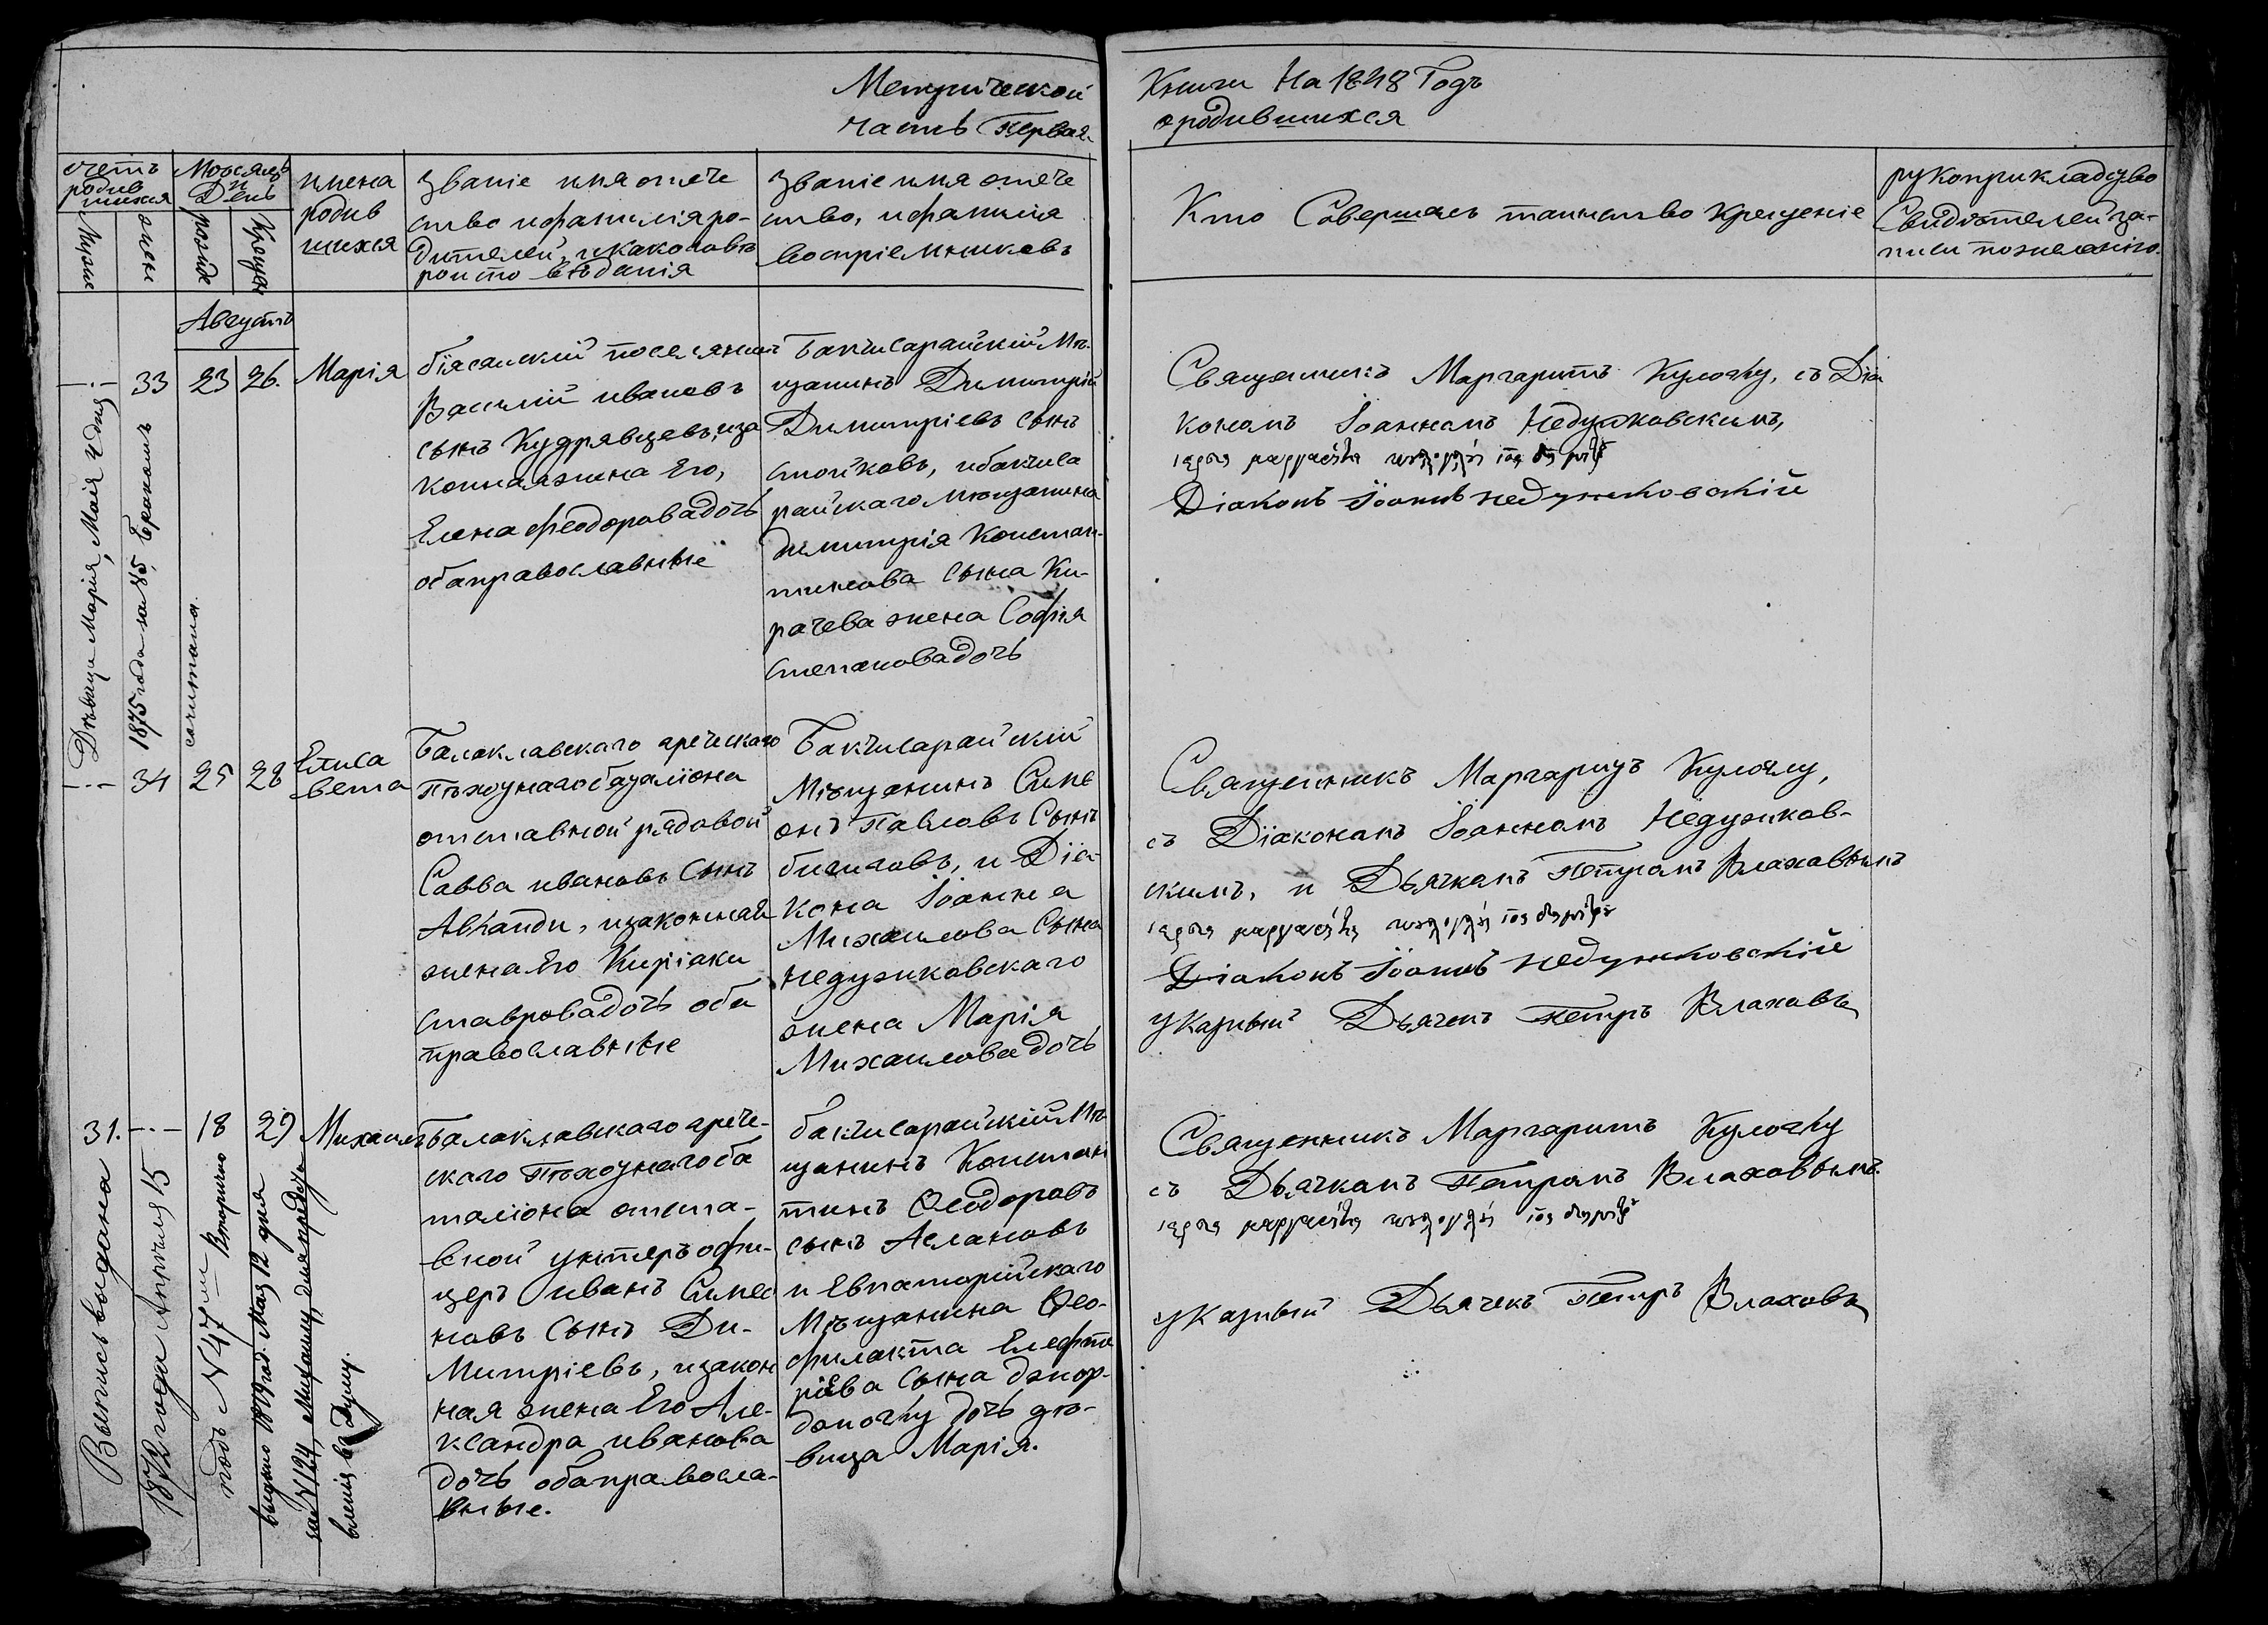 Метрической
часть Первая
Книги На 1848 Годъ
о родившихся
счетъ
родив
шихся
Мѣсяцъ
и
День
имена
родив
шихся
Званіе имя отече
ство и фамилія ро-
дителей, и какого вѣ
роисповѣданія
Званіе имя отече
ство, и фамилія
воспріемниковъ
Кто Совершалъ таинство крещеніе
рукоприкладство
Свидѣтелей за-
писи по желанію.
Августъ
33
23
26.
Марія
біясалскій поселянинъ
Василій ивановъ
сынъ Кудрявцевъ, иза
конная жена Его,
Елена феодорова дочь
оба православные
Бакчисарайскій Мѣ-
щанинъ Димитрій
Димитріевъ сынъ
стойковъ, и бакчиса
райскаго мѣщанина
димитрія Констан-
тинова сына Ки-
рачева жена Софія
степанова дочь
Священникъ Маргаритъ Кулоглу, съ Діа
кономъ Іоанномъ Недужковскимъ,
Діаконъ Іоаннъ недужковскій
Дѣвицы Марія, Маія 4 дня
1875 года за № 85, Бракомъ
сочитана.
34
25
28
Елиса
вета
Балаклавскаго греческаго
Пѣхотнаго баталіона
отставной рядовой
Савва ивановъ сынъ
Авланди, изаконная
жена Его Киріаки
ставрова дочь оба
православные
Бакчисарайскій
Мѣщанинъ Симе
онъ Павловъ Сынъ
бичиловъ, и Діа-
кона Іоанна
Михаилова Сына
недужковскаго
жена Марія
Михаилова дочь
Священникъ Маргаритъ Кулоглу,
съ Діакономъ Іоанномъ Недужков-
скимъ, и Дьячкомъ Петромъ Влаховымъ
Діаконъ Іоаннъ недужковскій
указный Дьячекъ Петръ Влаховъ
31.
18
29
Михаилъ
Балаклавскаго грече-
скаго Пѣхотнаго ба
таліона отста-
вной унтеръ офи-
церъ иванъ Симео
новъ Сынъ Ди-
Митріевъ, изакон
ная жена Его Але-
ксандра иванова
дочь оба правосла-
вные.
бакчисарайскій Мѣ-
щанинъ Констан
тинъ Ѳеодоровъ
сынъ Аслановъ
и Евпаторійскаго
Мѣщанина Ѳео-
филакта Елефте
ріева Сына
дочь дѣ-
вица Марія.
Священникъ Маргаритъ Кулоглу
съ Дьячкомъ Петромъ Влаховымъ.
указный Дьячекъ Петръ Влаховъ
Выпись выдана
1872 года Апрѣля 15
подъ N 47 Вторично
выдано 1879 год. Мая 12 дня
за N 124, Михаилу, для предъя
вленія въ Думу.